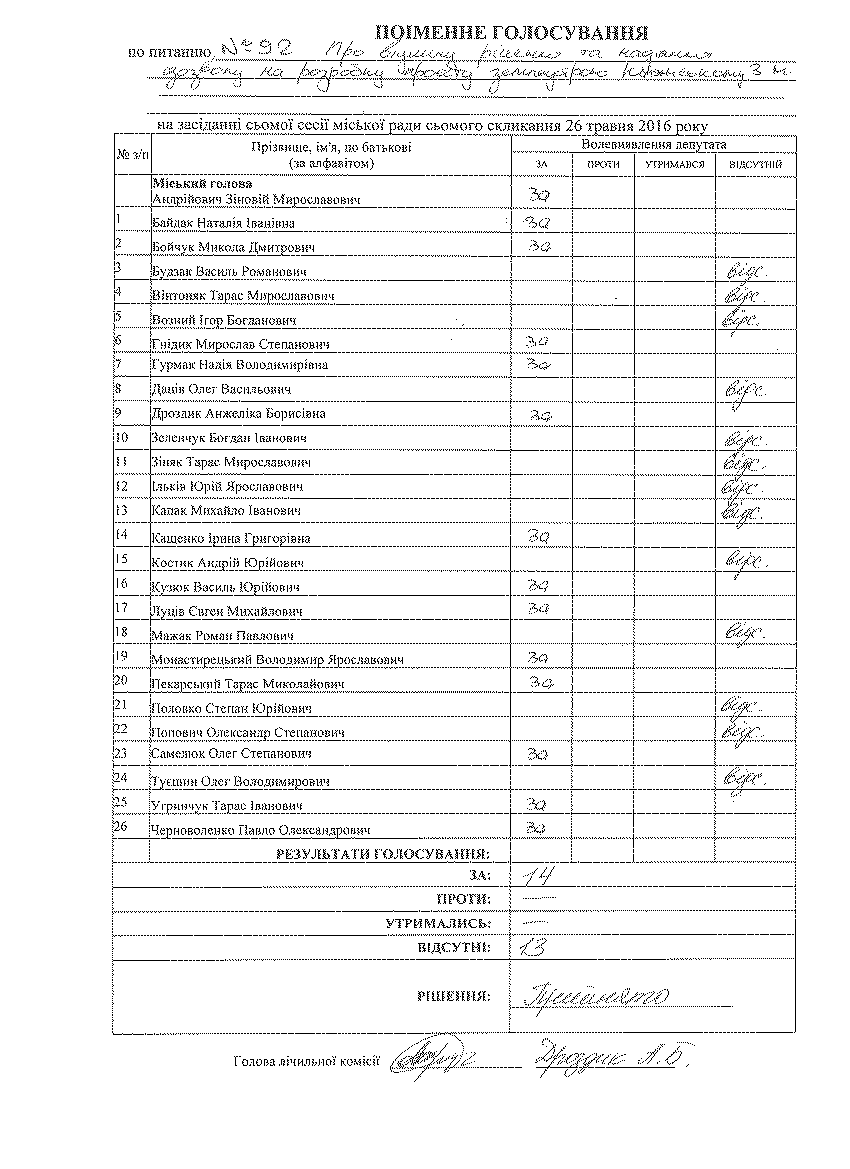 ПОІМЕННЕ ГОЛОСУВАННЯ
по питанню № 92 Про рішення та надання
дозволу на розробку проекту землеустрою З М.
на засіданні сьомої сесії міської ради сьомого скликання 26 травня 2016 року
№ з/п Прізвище, ім'я, по батькові (за алфавітом) Волевиявлення депутата
ЗА ПРОТИ УТРИМАВСЯ ВІДСУТНІЙ
Міський голова
Андрійович Зіновій Мирославович За
1 Байдак Наталія Іванівна За
2 Бойчук Микола Дмитрович За
3 Будзак Василь Романович Відс.
4 Вінтоняк Тарас Мирославович Відс.
5 Возний Ігор Богданович Відс.
6 Гнідик Мирослав Степанович За
7 Гурмак Надія Володимирівна За
8 Даців Олег Васильович Відс.
9 Дроздик Анжеліка Борисівна За
10 Зеленчук Богдан Іванович Відс.
11 Зіняк Тарас Мирославович Відс.
12 Ільків Юрій Ярославович Відс.
13 Капак Михайло Іванович Відс.
14 Кащенко Ірина Григорівна За
15 Костик Андрій Юрійович Відс.
16 Кузюк Василь Юрійович За
17 Луців Євген Михайлович За
18 Мажак Роман Павлович Відс.
19 Монастирецький Володимир Ярославович За
20 Пекарський Тарас Миколайович За
21 Половко Степан Юрійович Відс.
22 Попович Олександр Степанович Відс.
23 Самелюк Олег Степанович За
24 Туєшин Олег Володимирович Відс.
25 Угринчук Тарас Іванович За
26 Черноволенко Павло Олександрович За
РЕЗУЛЬТАТИ ГОЛОСУВАННЯ:
ЗА: 14
ПРОТИ: —
УТРИМАЛИСЬ: —
ВІДСУТНІ: 13
РІШЕННЯ: Прийнято
Голова лічильної комісії Дроздик А.Б.